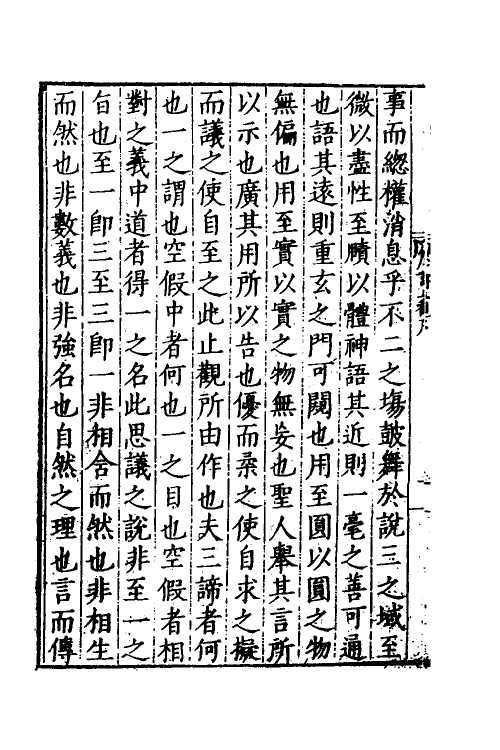 事而緫權消息乎不二之塲鼓舞於說三之域至
微以盡性至賾以體神語其近則一毫之善可通
也語其遠則重玄之門可闚也用至圓以圓之物
無偏也用至實以實之物無妄也聖人舉其言所
以示也廣其用所以告也優而柔之使自求之擬
而議之使自至之此止觀所由作也夫三諦者何
也一之謂也空假中者何也一之目也空假者相
對之義中道者得一之名此思議之說非至一之
㫖也至一卽三至三卽一非相含而然也非相生
而然也非數義也非強名也自然之理也言而傳